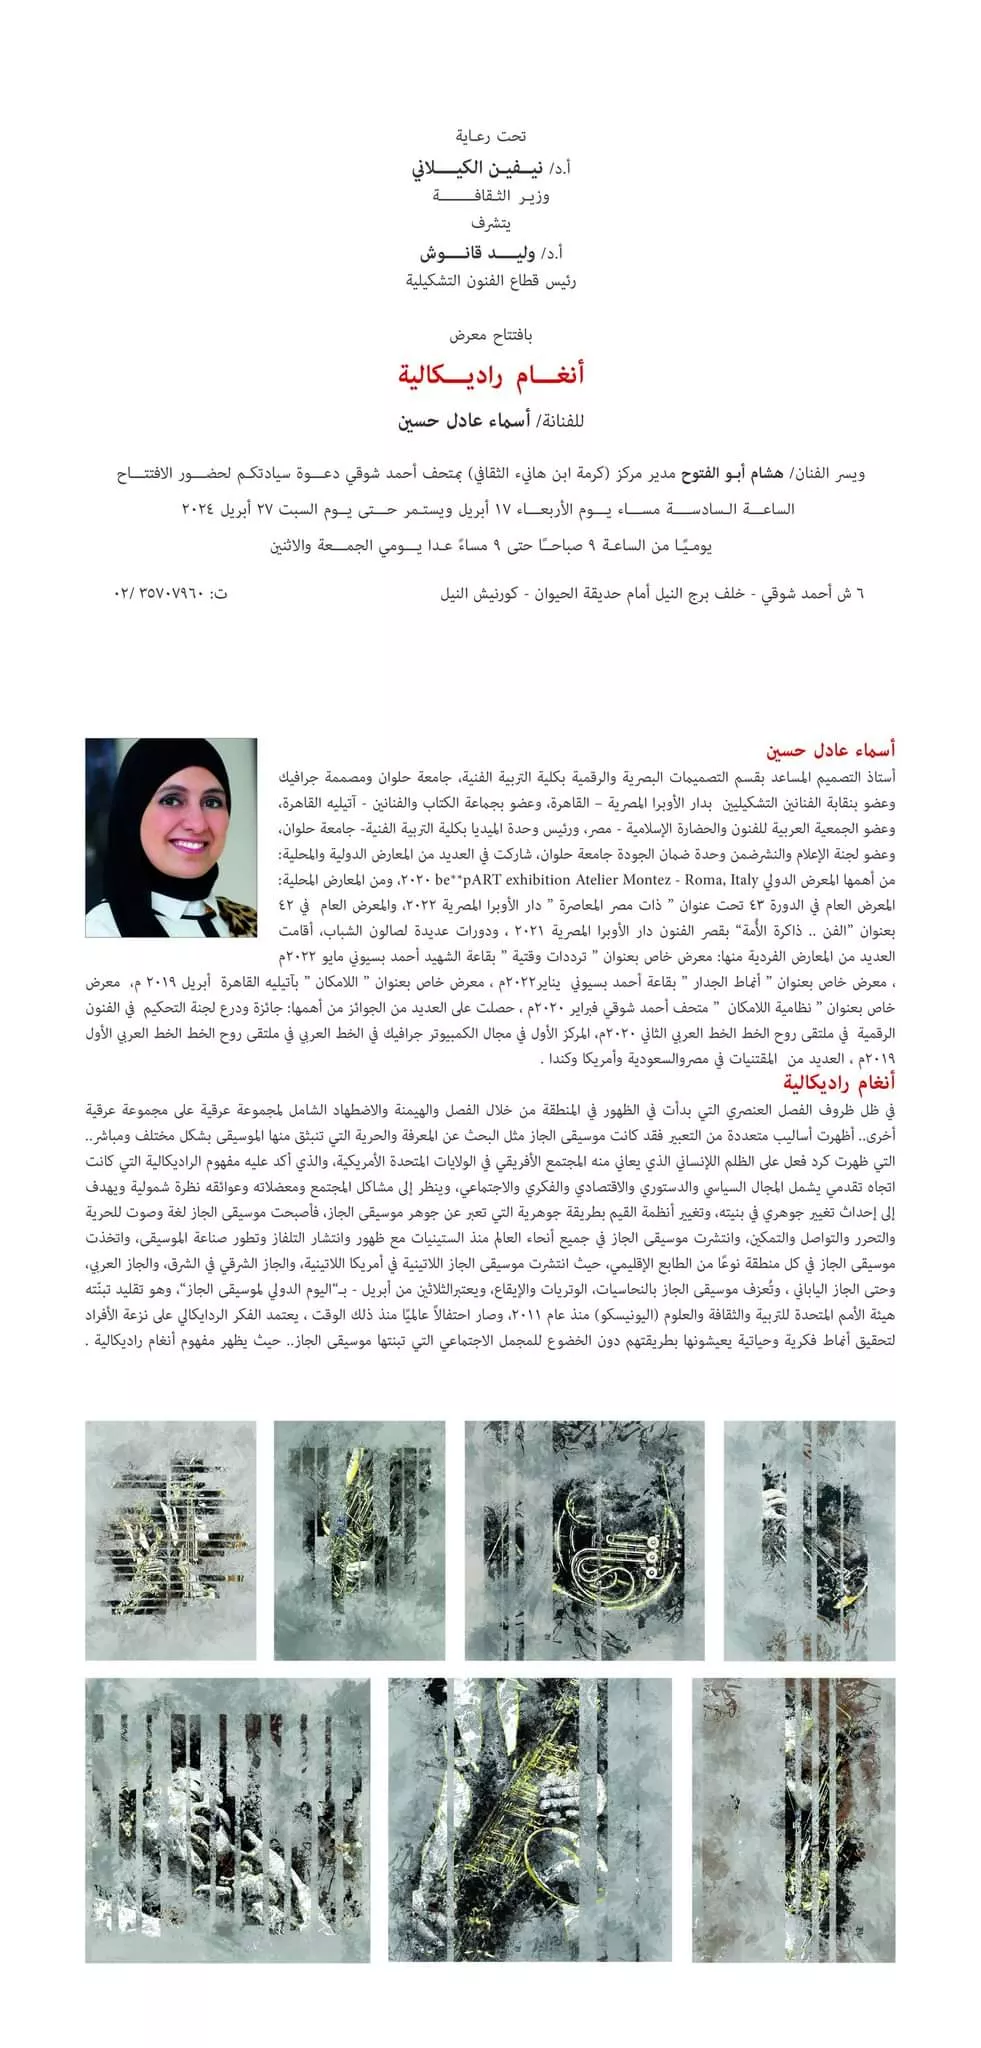 تحت رعاية
أ.د/ نيفين الكيلاني
وزير الثقافة
يتشرف
أ.د/ وليد قانوش
رئيس قطاع الفنون التشكيلية
بافتتاح معرض
أنغام راديكالية
للفنانة/ أسماء عادل حسين
ويسر الفنان/ هشام أبو الفتوح مدير مركز (كرمة ابن هانيء الثقافي) بمتحف أحمد شوقي دعوة سيادتكم لحضور الافتتاح
الساعة السادسة مساء يوم الأربعاء ١٧ أبريل ويستمر حتى يوم السبت ٢٧ أبريل ٢٠٢٤
يوميًا من الساعة ٩ صباحًا حتى ٩ مساءً عدا يومي الجمعة والاثنين
٦ ش أحمد شوقي - خلف برج النيل أمام حديقة الحيوان - كورنيش النيل ت: ٣٥٧٠٧٩٦٠ /٠٢
أسماء عادل حسين
أستاذ التصميم المساعد بقسم التصميمات البصرية والرقمية بكلية التربية الفنية، جامعة حلوان ومصممة جرافيك
وعضو بنقابة الفنانين التشكيليين بدار الأوبرا المصرية – القاهرة، وعضو بجماعة الكتاب والفنانين - آتيليه القاهرة،
وعضو الجمعية العربية للفنون والحضارة الإسلامية - مصر، ورئيس وحدة الميديا بكلية التربية الفنية- جامعة حلوان،
وعضو لجنة الإعلام والنشرضمن وحدة ضمان الجودة جامعة حلوان، شاركت في العديد من المعارض الدولية والمحلية:
من أهمها المعرض الدولي be**pART exhibition Atelier Montez - Roma, Italy ٢٠٢٠، ومن المعارض المحلية:
المعرض العام في الدورة ٤٣ تحت عنوان " ذات مصر المعاصرة " دار الأوبرا المصرية ٢٠٢٢، والمعرض العام في ٤٢
بعنوان "الفن .. ذاكرة الأُمة" بقصر الفنون دار الأوبرا المصرية ٢٠٢١ ، ودورات عديدة لصالون الشباب، أقامت
العديد من المعارض الفردية منها: معرض خاص بعنوان " ترددات وقتية " بقاعة الشهيد أحمد بسيوني مايو ٢٠٢٢م
، معرض خاص بعنوان " أنماط الجدار " بقاعة أحمد بسيوني يناير٢٠٢٢م ، معرض خاص بعنوان " اللامكان " بآتيليه القاهرة أبريل ٢٠١٩ م، معرض
خاص بعنوان " نظامية اللامكان " متحف أحمد شوقي فبراير ٢٠٢٠م ، حصلت على العديد من الجوائز من أهمها: جائزة ودرع لجنة التحكيم في الفنون
الرقمية في ملتقى روح الخط الخط العربي الثاني ٢٠٢٠م، المركز الأول في مجال الكمبيوتر جرافيك في الخط العربي في ملتقى روح الخط الخط العربي الأول
٢٠١٩م ، العديد من المقتنيات في مصروالسعودية وأمريكا وكندا .
أنغام راديكالية
في ظل ظروف الفصل العنصري التي بدأت في الظهور في المنطقة من خلال الفصل والهيمنة والاضطهاد الشامل لمجموعة عرقية على مجموعة عرقية
أخرى.. أظهرت أساليب متعددة من التعبير فقد كانت موسيقى الجاز مثل البحث عن المعرفة والحرية التي تنبثق منها الموسيقى بشكل مختلف ومباشر..
التي ظهرت كرد فعل على الظلم اللإنساني الذي يعاني منه المجتمع الأفريقي في الولايات المتحدة الأمريكية، والذي أكد عليه مفهوم الراديكالية التي كانت
اتجاه تقدمي يشمل المجال السياسي والدستوري والاقتصادي والفكري والاجتماعي، وينظر إلى مشاكل المجتمع ومعضلاته وعوائقه نظرة شمولية ويهدف
إلى إحداث تغيير جوهري في بنيته، وتغيير أنظمة القيم بطريقة جوهرية التي تعبر عن جوهر موسيقى الجاز، فأصبحت موسيقى الجاز لغة وصوت للحرية
والتحرر والتواصل والتمكين، وانتشرت موسيقى الجاز في جميع أنحاء العالم منذ الستينيات مع ظهور وانتشار التلفاز وتطور صناعة الموسيقى، واتخذت
موسيقى الجاز في كل منطقة نوعًا من الطابع الإقليمي، حيث انتشرت موسيقى الجاز اللاتينية في أمريكا اللاتينية، والجاز الشرقي في الشرق، والجاز العربي،
وحتى الجاز الياباني ، وتُعزف موسيقى الجاز بالنحاسيات، الوتريات والإيقاع، ويعتبرالثلاثين من أبريل - بـ"اليوم الدولي لموسيقى الجاز"، وهو تقليد تبنّته
هيئة الأمم المتحدة للتربية والثقافة والعلوم (اليونيسكو) منذ عام ٢٠١١، وصار احتفالاً عالميًا منذ ذلك الوقت ، يعتمد الفكر الردايكالي على نزعة الأفراد
لتحقيق أنماط فكرية وحياتية يعيشونها بطريقتهم دون الخضوع للمجمل الاجتماعي التي تبنتها موسيقى الجاز.. حيث يظهر مفهوم أنغام راديكالية .